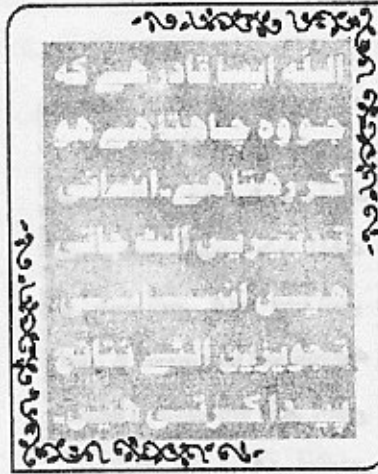 اللہ ایسا قادر ہے کہ
جو وہ چاہتا ہے ہو
کر رہتا ہے۔ انسانی
تدبیریں الٹ جاتی
ہیں
تجویزیں الٹے نتائج
پیدا کرتی ہیں۔